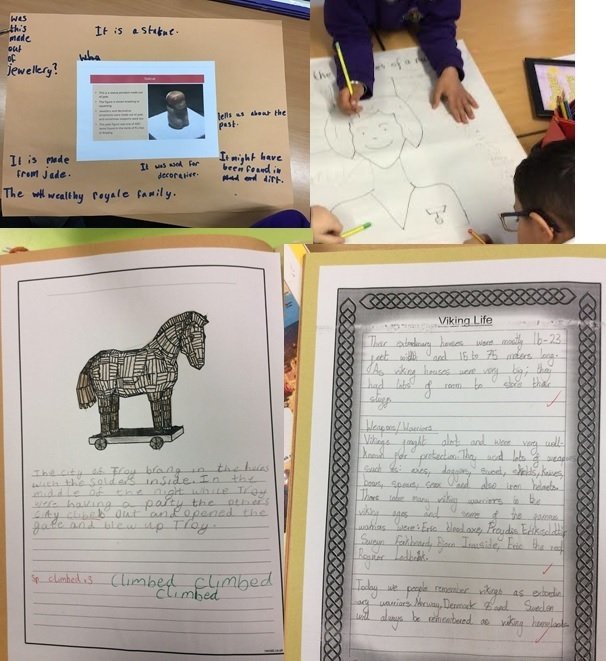 Was
this
made
out
of
jewellery?
It is a Statue.
Who
Statue
This is a statue pendant made out of jade.
tells us about the
past.
It is made
from jade.
It was used for
decorative.
It might have
been found in
mud and dirt.
The wealthy royale family.
the es of a
The city of Troy brang in the horse
with the solders inside. In the
middle of the night while Troy
were having a party the
city clibed out and opened the
gate and blew up Troy.
Sp climbed x3 Climbed climbed
Climbed
Viking Life
Their extrodinary houses were mostly 16-23
feet width and 15 to 75 meters long.
As viking houses were very big; they
had lots of room to store their
stuff.
Weapons/Warriors
Vikings fought alot and were very well-
known for protection. They used lots of weapons
such as: axes, daggers, sword, shields, knives,
bows, spears, seax and also iron helmets.
There were many viking warriors in the
viking ages and some of the famous
warriors were: Eric bloodaxe, Freydis Eiriksdottir,
Sweyn Forkbeard, Bjorn Ironside, Eric the red,
Ragnar Lodbrok.
Today we people remember vikings as extordin
ary warriors. Norway, Denmark and Sweden
will always be remembered as viking homelands.